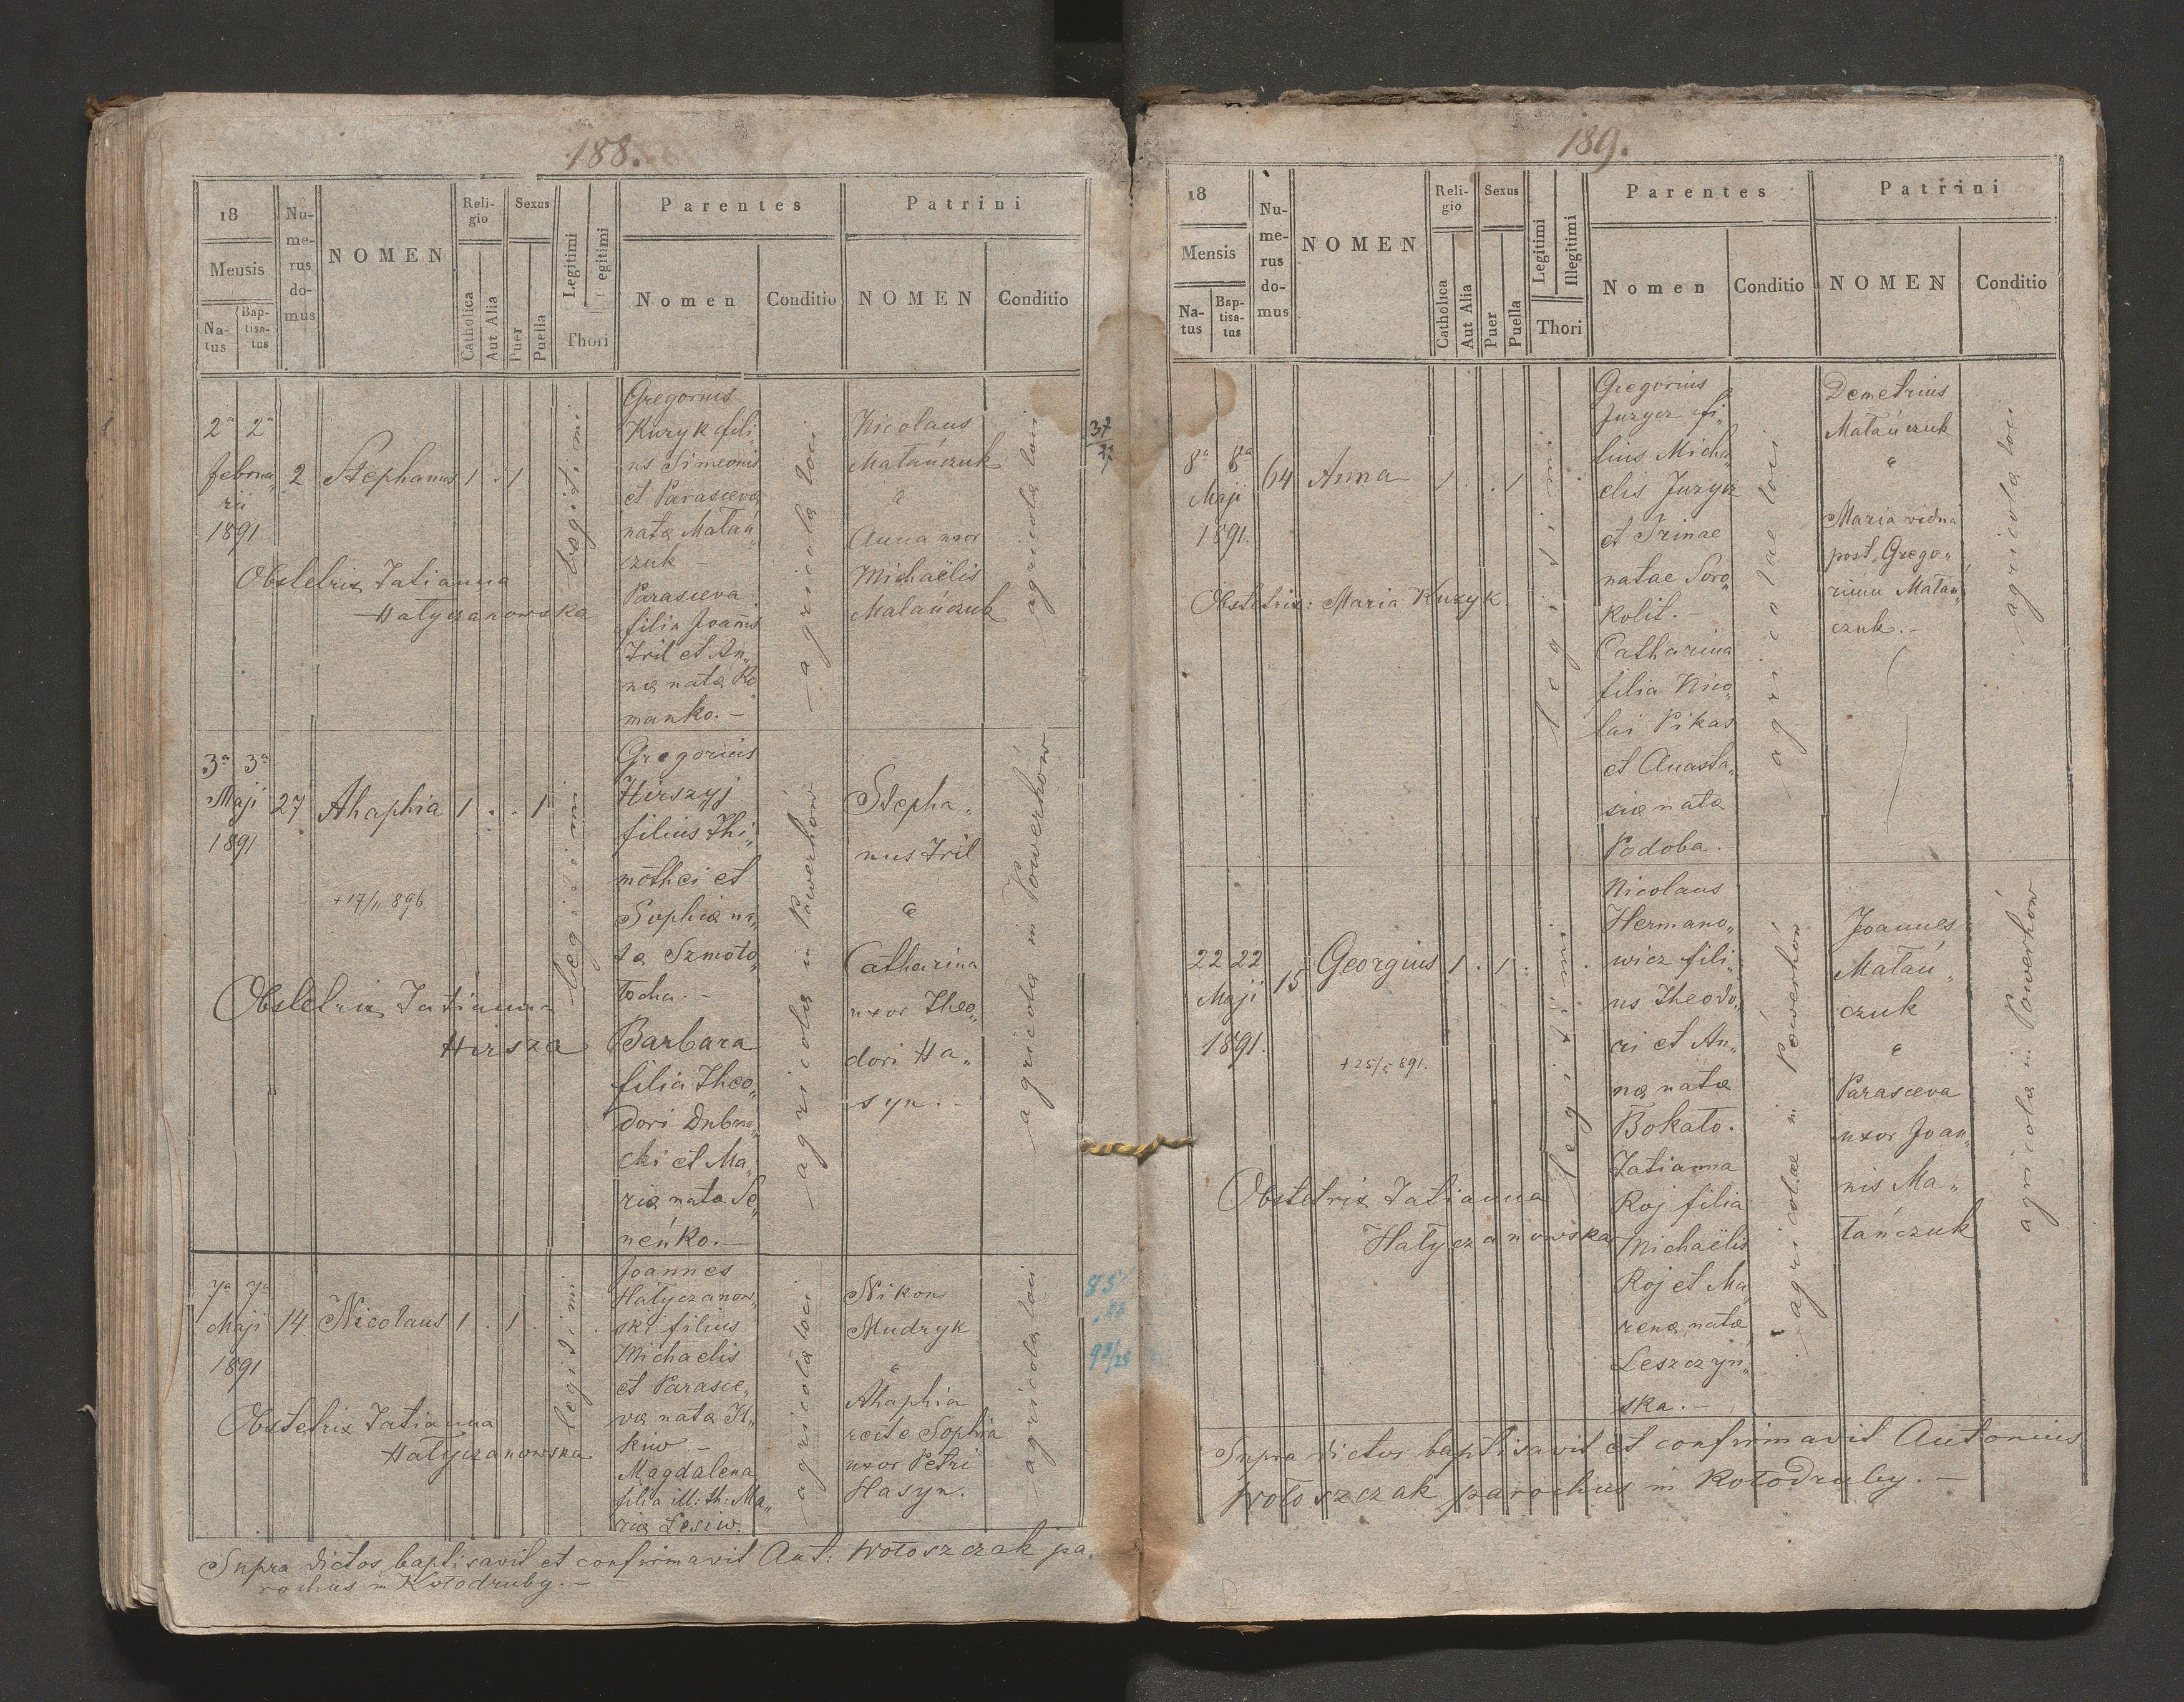 188.
18
Mensis
Na-
tus
Bap-
tisa-
tus
Nu-
me-
rus
do-
mus
NOMEN
Reli-
gio
Catholica
Aut Alia
Sexus
Puer
Puella
Legitimi
Thori
Parentes
Nomen
Conditio
Patrini
NOMEN
Conditio
2a 2a
februa„
rii
1891
2
Stephanus
1 . 1
legitimi
Gregorius
Kuzyk fili
us Simeonis
et Parasceva
nata Matań„
czuk.-
Parasceva
filia Joannis
Iril et An„
na nata Ro
manko.-
agricola loci
Nicolaus
Matańczuk
a
Anna uxor
Michaëlis
Matańczuk
agricola loci
37
Obstetrix Tatianna
Hałyczanowska
3a 3a
Maji
1891
27
Ahaphia
1 . . 1
+17/11 896
legitimi
Gregorius
Hirszyj
filius Thi„
mothei et
Sophia na„
ta Szmoto„
tocha.-
Barbara
filia Theo„
dori Dubna„
cki et Ma„
ria nata Se„
neńko.-
agricola in Powerhów
Stepha„
nus Iril
a
Catharina
uxor Theo„
dori Ha„
syn.-
agricola in Powerhów
Obstetrix Tatianna
Hirsza
7a 7a
Maji
1891
14.
Nicolaus
1 . 1 .
legitimi
Joannes
Hałyczanow„
ski filius
Michaelis
et Parasce„
va nata
kiw.-
Magdalena
filia ill: th: Ma„
ria Lesiw.
agricola loci
Nikon
Mudryk
a
Ahaphia
recte Sophia
uxor Petri
Hasyn.
agricola loci
85
Obstetrix Tatianna
Hałyczanowska
Supra dictos baptisavit et confirmavit Ant: Wołoszczak pa„
rochus in Kołodruby.-
189.
18
Mensis
Na-
tus
Bap-
tisa-
tus
Nu-
me-
rus
do-
mus
NOMEN
Reli-
gio
Catholica
Aut Alia
Sexus
Puer
Puella
Legitimi
Illegitimi
Thori
Parentes
Nomen
Conditio
Patrini
NOMEN
Conditio
8a 8va
Maji
1891.
64
Anna
1 . . 1
legitimi
Gregorius
Juzycz fi„
lius Micha„
elis Juzycz
et Irinae
natae Soro„
kolit.-
Catharina
filia Nico„
lai Pikas
et Anasta„
sia nata
Podoba.
agricolae loci
Demetrius
Matańczuk
a
Maria vidua
post Grego„
rium Matań„
czuk.-
agricola loci
Obstetrix: Maria Kuzyk
22 22
Maji
1891.
15
Georgius
1 . 1 .
+25/5 891.
legitimi
Nicolaus
Hermano„
wicz fili„
us Theodo„
ri et An„
na nata
Bokało.
Tatianna
Roj filia
Michaëlis
Roj et Ma„
rena nata
Leszczyń„
ska.-
agricolae in Powerhów
Joannes
Matań„
czuk
a
Parasceva
uxor Joan„
nis Ma„
tańczuk
agricola in Powerhów
Obstetrix Tatianna
Hałyczanowska
Supra dictos baptisavit et confirmavit Antonius
Wołoszczak parochus in Kołodruby.-